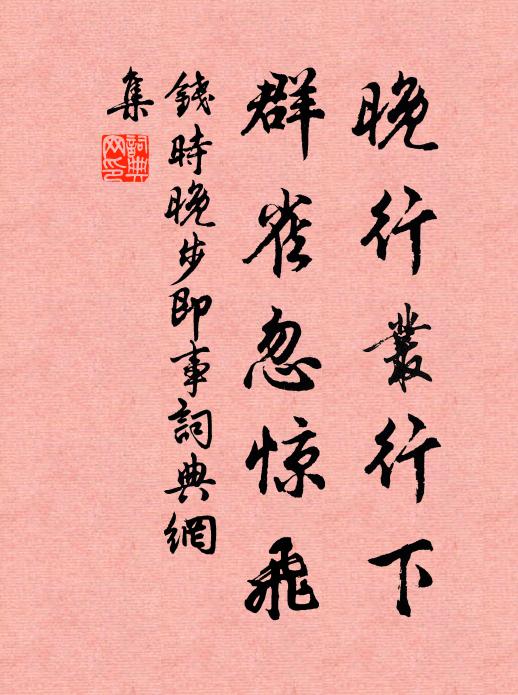 晚行叢行下
群雀忽惊飛
錢時晚步即事詞典網
集
詞典網印